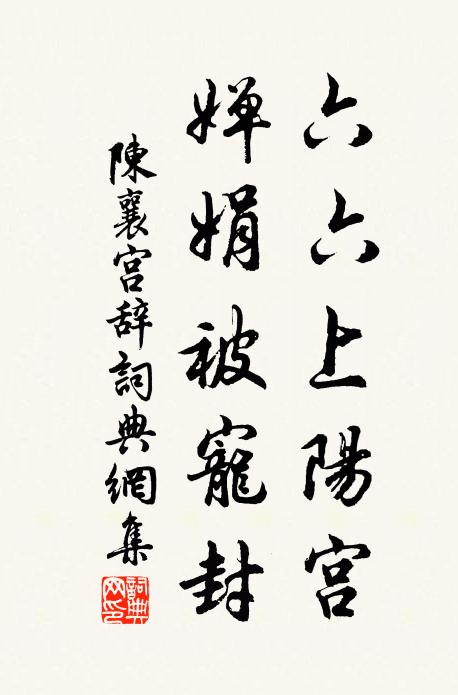 六六上陽宮
嬋娟被寵封
陳襄宮辞詞典網集
詞典网印